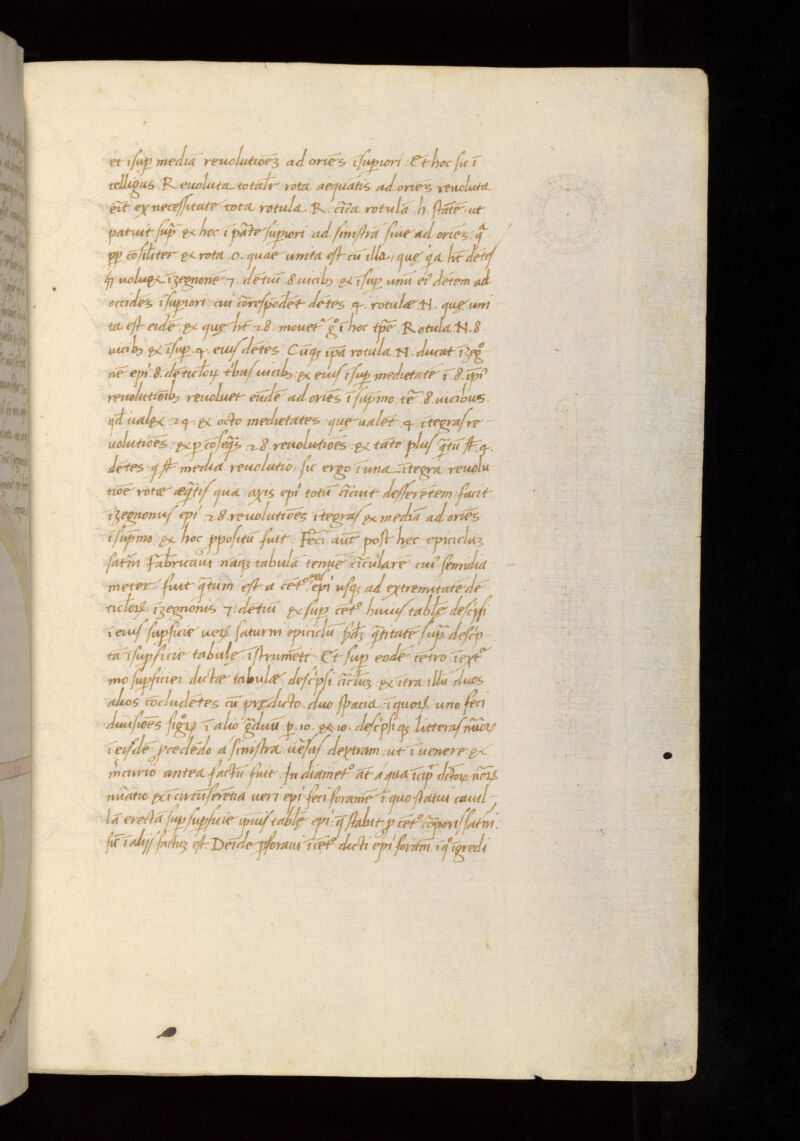 et isup mediā revolutiōeʒ ad oriēs isupiori Et hoc sic ī
telligas Revoluta totalr rota aequātis ad oriēs revoluta
erit ex necessitate tota rotula R. circa rotulā h stātē ut
patuit supra & hoc ī pāte supiori ad sinistrā sive ad oriēs
cōsilr & rota .o. quae unita est cū illa, que q̄a ht dētes
ħ volu& izegnone 7 dētiū 8 vicib & isup unū ei dētem ad
occidēs isupiori cui corespōdēt dētes 4. rotulae N. que uni
ta est eidē & que ht 28 movet g° ī hoc tpe Rotula N. 8.
vicib & isup 4. eius dētes. Cūqʒ ipā rotula N. ducat izeg°
nē epi 8. dēticloʒ tbus vicib & eius isup medietate ī 8. ipi
revolutiōib revolvet eūdē ad oriēs ī supmo tē 8. vicibus
qd val& 24 & octo medietates que valēt 4 itegras re
volutiōes & p cōseqs 28. revolutiōes & tāto plus qtū st 4.
dētes q st media revolutio sic ergo ī una itegra revolu
tiōe rotae aeqtis qua axis epi totū circuit defferētem facit
izegnonus epi 28 revolutiōes itegras & mediā ad oriēs
isupmo & hoc ppositū fuit. Feci aūt post hec epicicluʒ
satni Fabricavi nāqʒ tabulā tenuē circulare cui semidia
meter fuit qtum est a cēt° epi usqʒ ad extremitate dē
ticloʒ izegnonis 7. dētiū & sup cēt° huius table descpsi
ī eius supficie veʒ saturni epiciclū scdʒ qtitatē sup descp
tā isupficie tabule istrumēti Et sup eodē cētro iext°
mo supficiei dictae tabulae descpsi circluʒ & itra illū duos
alios cōcludētes cū predicto duo spacia ī quoʒ uno feci
divisiōes sigoʒ ī alio gduū p 10. & 10. descpsiqʒ litteras nūoʒ
ī eisdē pcedēdo a sinistra vsus dextram ut ī venere &
mercurio antea factū fuit. In diamet° āt a qua icip dctoʒ nūoʒ
nūatio exi circūferētia veri epi feci foramē ī quo statui cavil
lā erectā sup supficie quius table epi q stabit p cēt° corporis satni
sic ī aliis factuʒ est Deide pforavi icēt° dicti epi foram iq° igredi